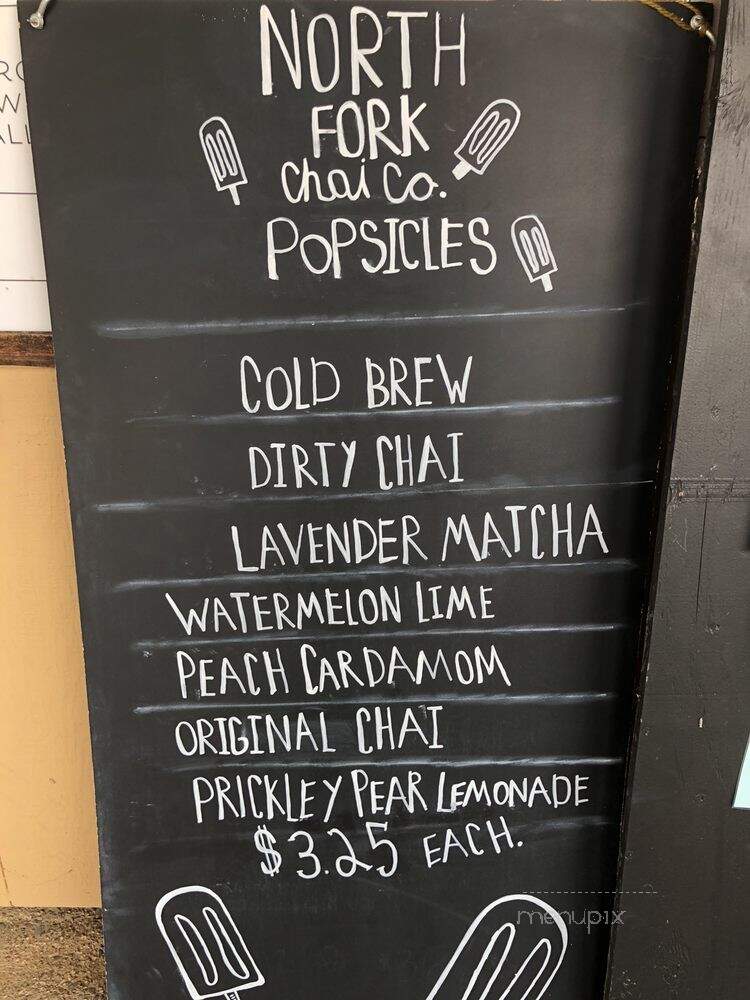 NORTH
FORK
Chai Co.
POPSICLES
COLD BREW
DIRTY CHAI
LAVENDER MATCHA
WATERMELON LIME
PEACH CARDAMOM
ORIGINAL CHAI
PRICKLEY PEAR LEMONADE
$3.25 EACH.
menupix